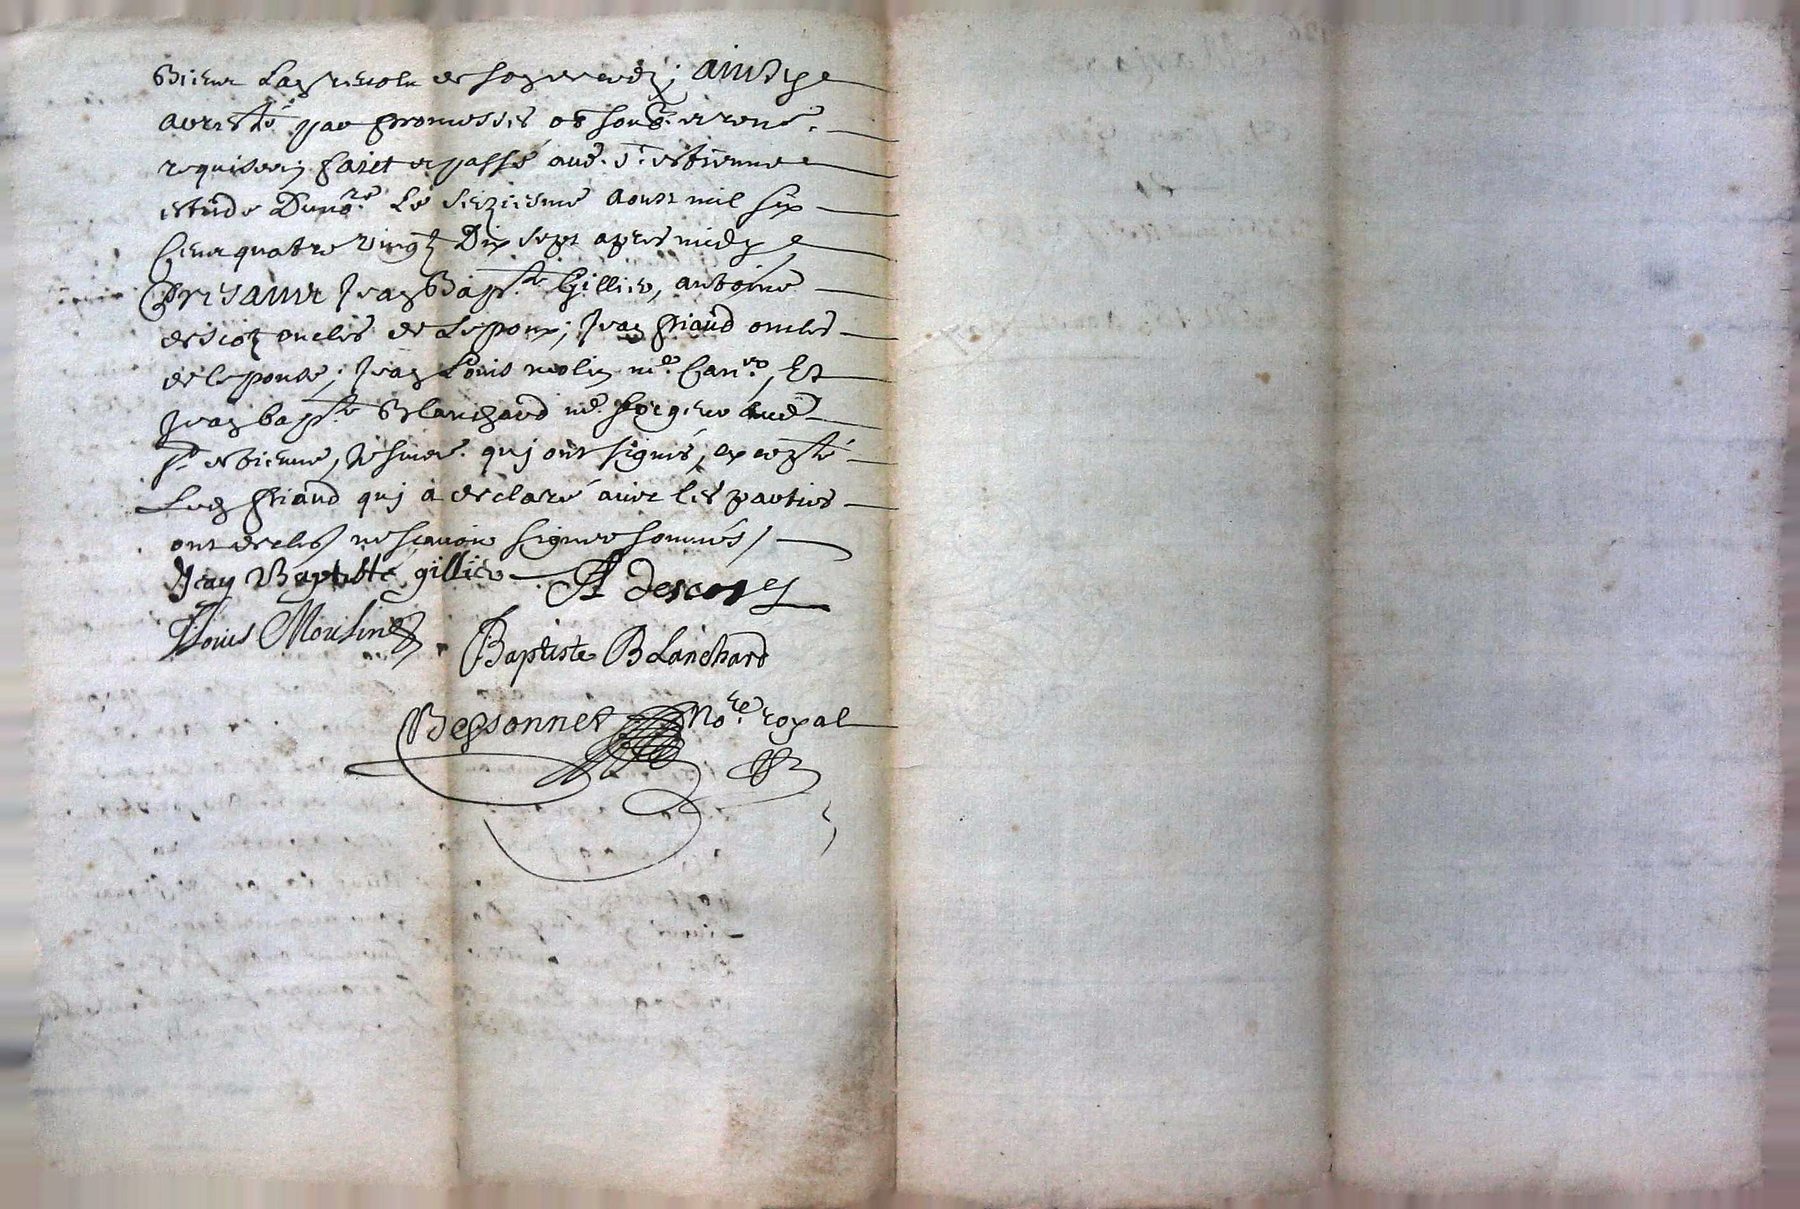 arresté par promesses obson. et renon.
requisi. faict et passé aud. st. estienne
estude du no.re Le seiziesme aoust mil six
Cent quatre vingtz Dix sept apres midy
Presantz Jean Bap.te Gillier, antoine
descoz oncles de Lepoux; Jean friaud oncles
de lepouse; Jean Louis molin m.e Can.er, Et
Jean bap.te Blanchard m.e forgeur aud.
st. estienne, tesmoi. qui ont signés, excepté
Led friaud qui a declaré avec les parties
ont declés ne scavoir signer sommés /
Jean Baptiste gillier A descos
Louis Moulin
Baptiste Blanchard
Bessonnet No.re royal